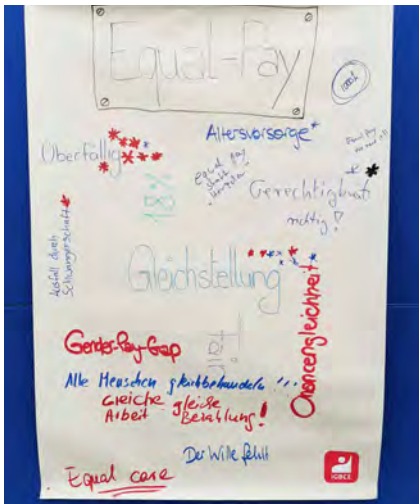 Equal-Pay
100%
Altersvorsorge*
Equal Pay
Überfällig
equal pay
18%
Gerechtigkeit
richtig!
Ausfall durch
Schwangerschaft
Gleichstellung
Chancengleichheit
Fair
Gender-Pay-Gap
Alle Menschen gleichbehandeln!!!
Gleiche gleiche
Arbeit Bezahlung!
Der Wille fehlt
Equal care
IGBCE